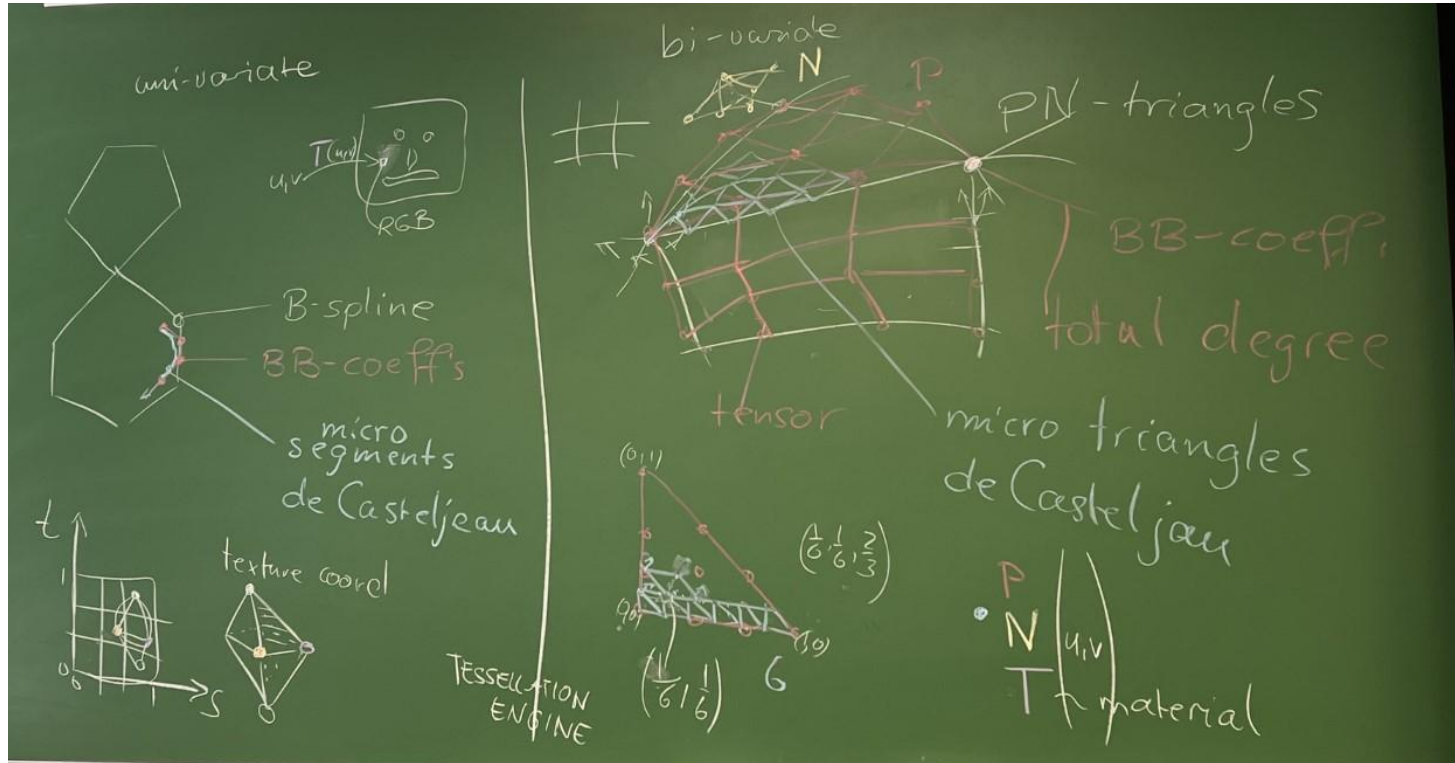 uni-variate
T(u,v)
u,v
RGB
B-spline
BB-coeff's
micro
segments
de Casteljeau
t
1
0
0
1
s
texture coord
TESSELLATION
ENGINE
bi-variate
N
P
PN-triangles
BB-coeff.
total degree
tensor
micro triangles
de Casteljau
(0,1)
(1,0)
(1/6, 1/6)
6
(1/6, 1/6, 2/3)
P
N
T
(u,v)
material